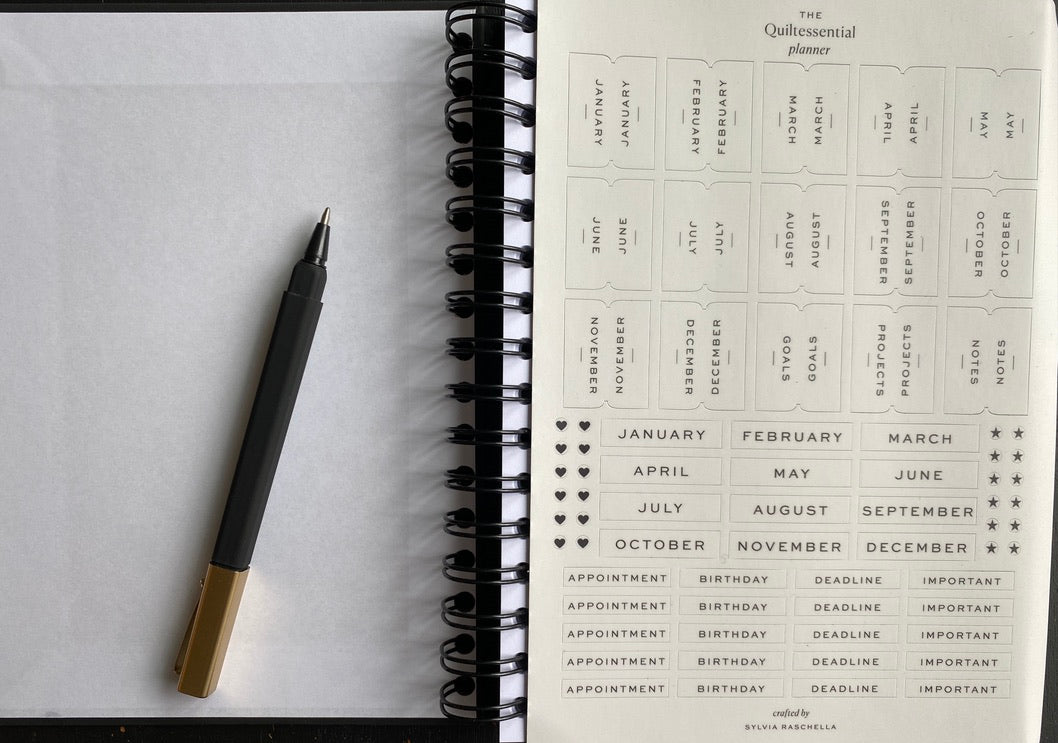 THE
Quiltessential
planner
JANUARY JANUARY FEBRUARY FEBRUARY MARCH MARCH APRIL APRIL MAY MAY
JUNE JUNE JULY JULY AUGUST AUGUST SEPTEMBER SEPTEMBER OCTOBER OCTOBER
NOVEMBER NOVEMBER DECEMBER DECEMBER GOALS GOALS PROJECTS PROJECTS NOTES NOTES
JANUARY FEBRUARY MARCH
APRIL MAY JUNE
JULY AUGUST SEPTEMBER
OCTOBER NOVEMBER DECEMBER
APPOINTMENT BIRTHDAY DEADLINE IMPORTANT
APPOINTMENT BIRTHDAY DEADLINE IMPORTANT
APPOINTMENT BIRTHDAY DEADLINE IMPORTANT
APPOINTMENT BIRTHDAY DEADLINE IMPORTANT
APPOINTMENT BIRTHDAY DEADLINE IMPORTANT
crafted by
SYLVIA RASCHELLA